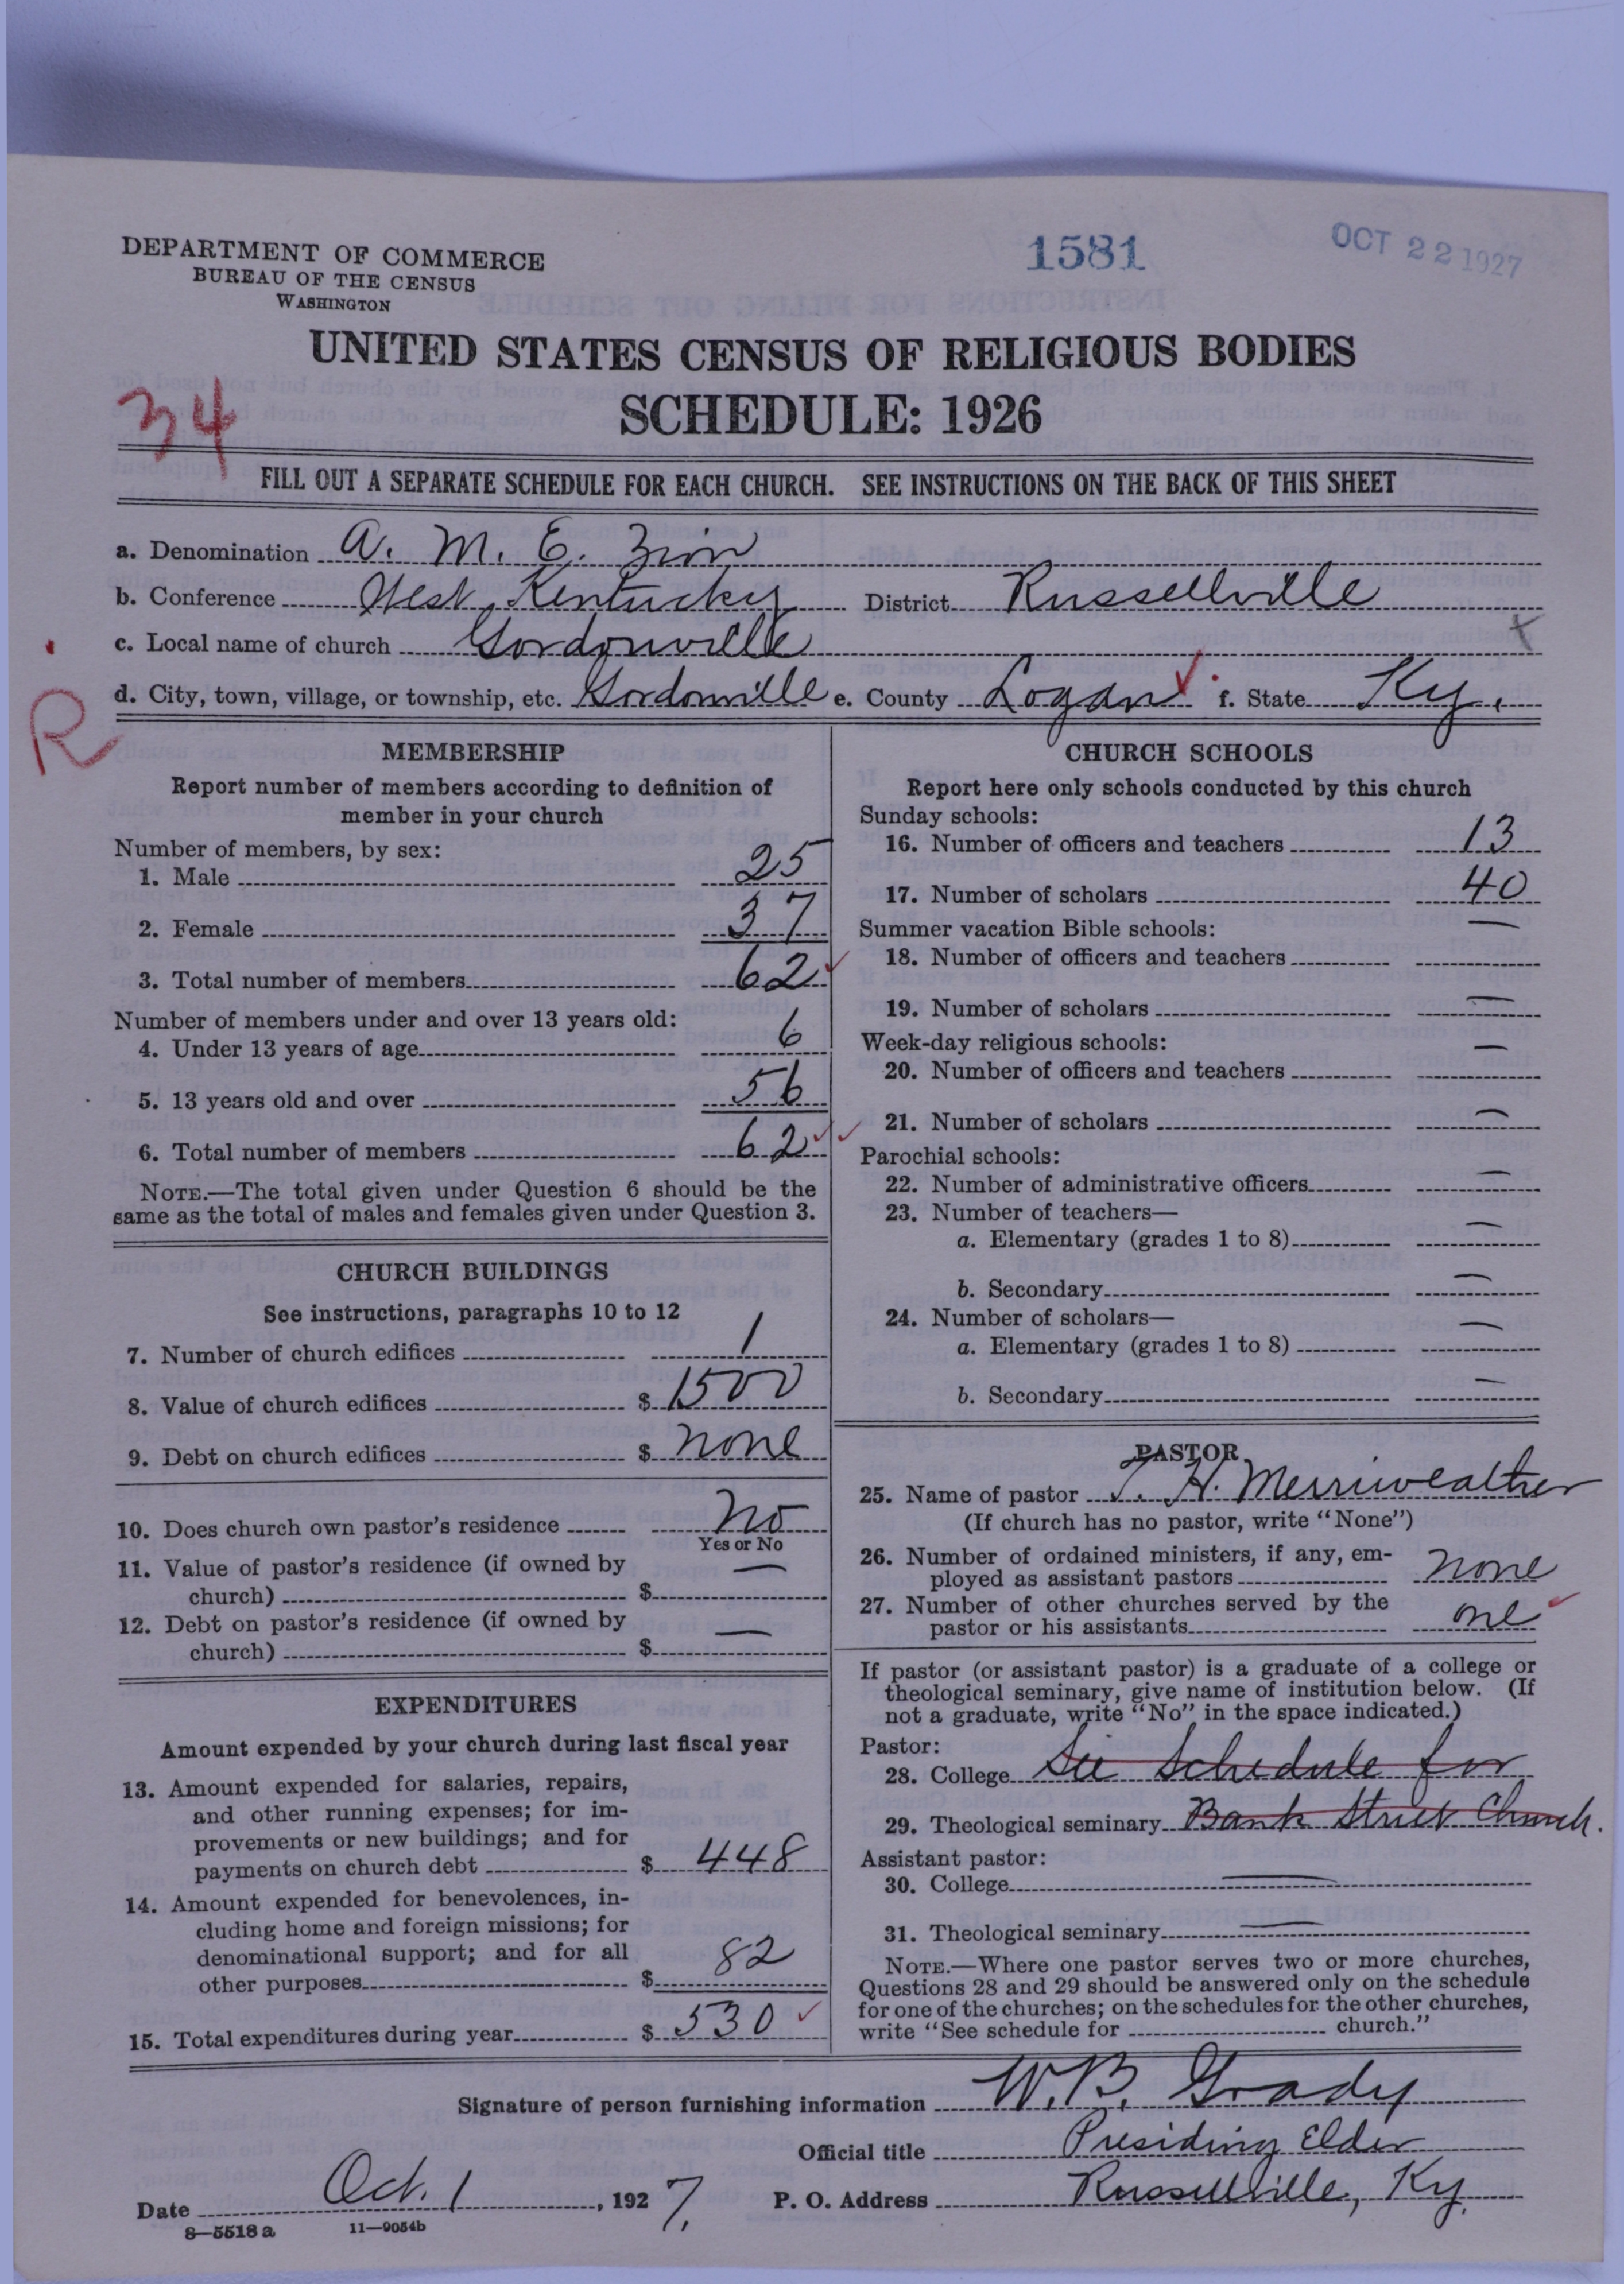 DEPARTMENT OF COMMERCE
BUREAU OF THE CENSUS
WASHINGTON
1581
OCT 22 1927
UNITED STATES CENSUS OF RELIGIOUS BODIES
SCHEDULE: 1926
34
FILL OUT A SEPARATE SCHEDULE FOR EACH CHURCH. SEE INSTRUCTIONS ON THE BACK OF THIS SHEET
a. Denomination A. M. E. Zion
b. Conference West Kentucky District Russellville
c. Local name of church Gordonville
x
d. City, town, village, or township, etc. Gordonville e. County Logan f. State Ky.
R
MEMBERSHIP
Report number of members according to definition of
member in your church
Number of members, by sex:
1. Male 25
2. Female 37
3. Total number of members 62
Number of members under and over 13 years old:
4. Under 13 years of age 6
5. 13 years old and over 56
6. Total number of members 62
NOTE.—The total given under Question 6 should be the
same as the total of males and females given under Question 3.
CHURCH BUILDINGS
See instructions, paragraphs 10 to 12
7. Number of church edifices 1
8. Value of church edifices $ 1500
9. Debt on church edifices $ none
10. Does church own pastor's residence No
Yes or No
11. Value of pastor's residence (if owned by
church) $ —
12. Debt on pastor's residence (if owned by
church) $ —
EXPENDITURES
Amount expended by your church during last fiscal year
13. Amount expended for salaries, repairs,
and other running expenses; for im-
provements or new buildings; and for
payments on church debt $ 448
14. Amount expended for benevolences, in-
cluding home and foreign missions; for
denominational support; and for all
other purposes $ 82
15. Total expenditures during year $ 530
CHURCH SCHOOLS
Report here only schools conducted by this church
Sunday schools:
16. Number of officers and teachers 13
17. Number of scholars 40
Summer vacation Bible schools:
18. Number of officers and teachers —
19. Number of scholars —
Week-day religious schools:
20. Number of officers and teachers —
21. Number of scholars —
Parochial schools:
22. Number of administrative officers —
23. Number of teachers—
a. Elementary (grades 1 to 8) —
b. Secondary —
24. Number of scholars—
a. Elementary (grades 1 to 8) —
b. Secondary —
PASTOR
25. Name of pastor T. H. Merriweather
(If church has no pastor, write "None")
26. Number of ordained ministers, if any, em-
ployed as assistant pastors none
27. Number of other churches served by the
pastor or his assistants one
If pastor (or assistant pastor) is a graduate of a college or
theological seminary, give name of institution below. (If
not a graduate, write "No" in the space indicated.)
Pastor:
28. College See Schedule for
29. Theological seminary Bank Street Church.
Assistant pastor:
30. College —
31. Theological seminary —
NOTE.—Where one pastor serves two or more churches,
Questions 28 and 29 should be answered only on the schedule
for one of the churches; on the schedules for the other churches,
write "See schedule for church."
Signature of person furnishing information W. B. Grady
Official title Presiding Elder
Date Oct. 1, 1927. P. O. Address Russellville, Ky.
8—5518 a 11—9054b